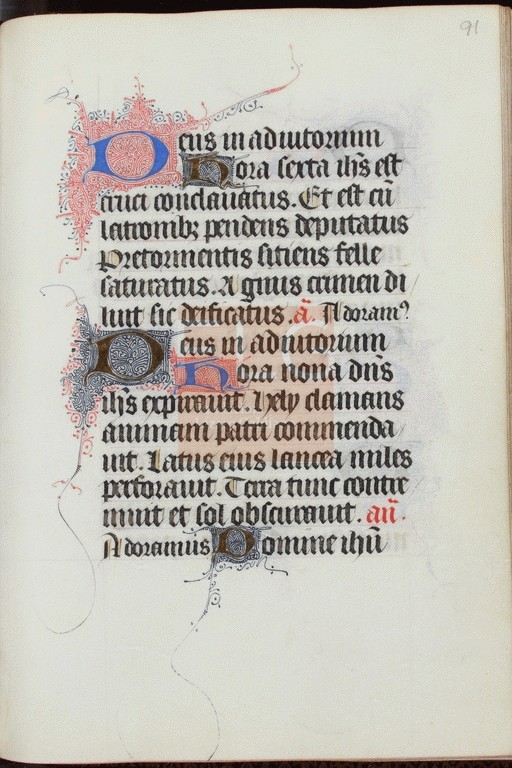 91
Deus in adiutorium
Hora sexta ihs est
cruci conclauatus. Et est cu
latronibz pendens deputatus
Pretormentis sitiens felle
saturatus. Agnus crimen di
luit sic deificatus. a. Adoram9.
Deus in adiutorium
Hora nona dns
ihs expirauit. Hely clamans
animam patri commenda
uit. Latus eius lancea miles
perforauit. Terra tunc contre
muit et sol obscurauit. an.
Adoramus Domine ihu